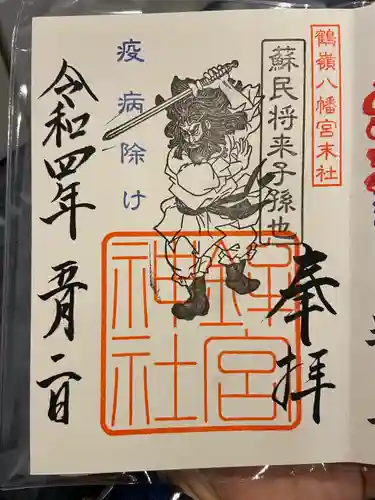 鶴嶺八幡宮末社
蘇民将来子孫也
奉拝
鉾宮
神社
疫病除け
令和四年
五月二日